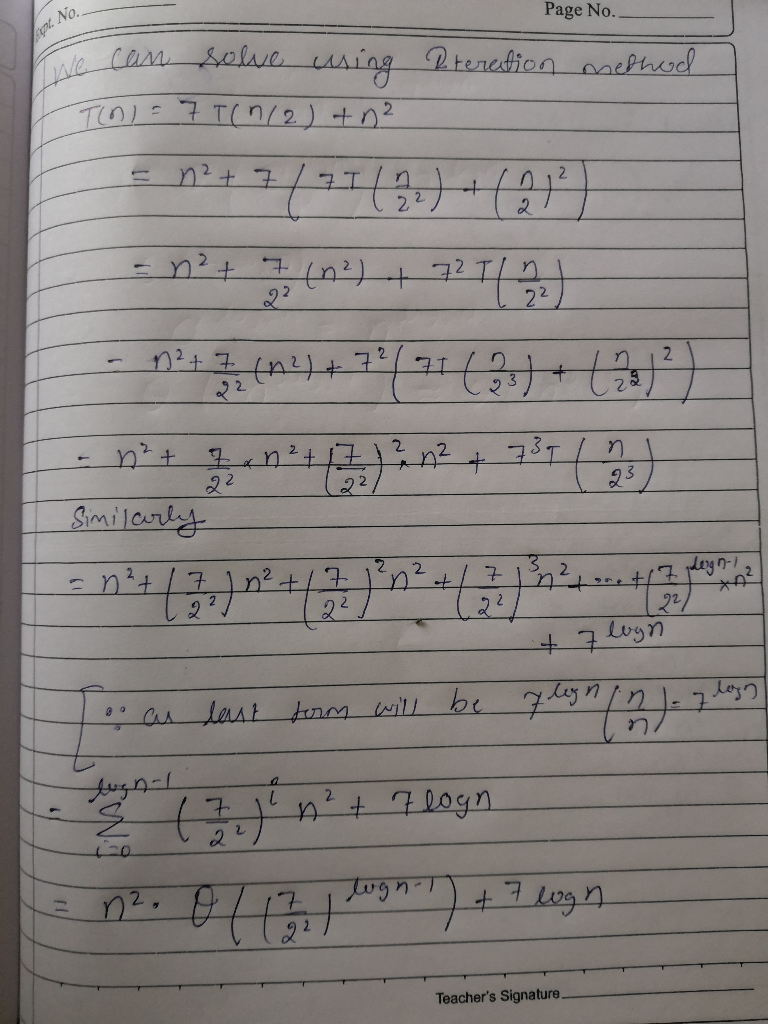 Expt. No.
Page No.
We can solve using Iteration method
T(n) = 7 T(n/2) + n²
= n² + 7 ( 7T ( n/2² ) + ( n/2 )² )
= n² + 7/2² (n²) + 7² T( n/2² )
= n² + 7/2² (n²) + 7² ( 7T ( n/2³ ) + ( n/2² )² )
= n² + 7/2² × n² + ( 7/2² )² × n² + 7³ T ( n/2³ )
Similarly
= n² + ( 7/2² ) n² + ( 7/2² )² n² + ( 7/2² )³ n² + ... + ( 7/2² )^(log n-1) × n²
+ 7^(log n)
[ ∵ as last term will be 7^(log n) ( n/n ) = 7^(log n)
= Σ_(i=0)^(log n-1) ( 7/2² )^i n² + 7 log n
= n² . θ ( ( 7/2² )^(log n-1) ) + 7 log n
Teacher's Signature